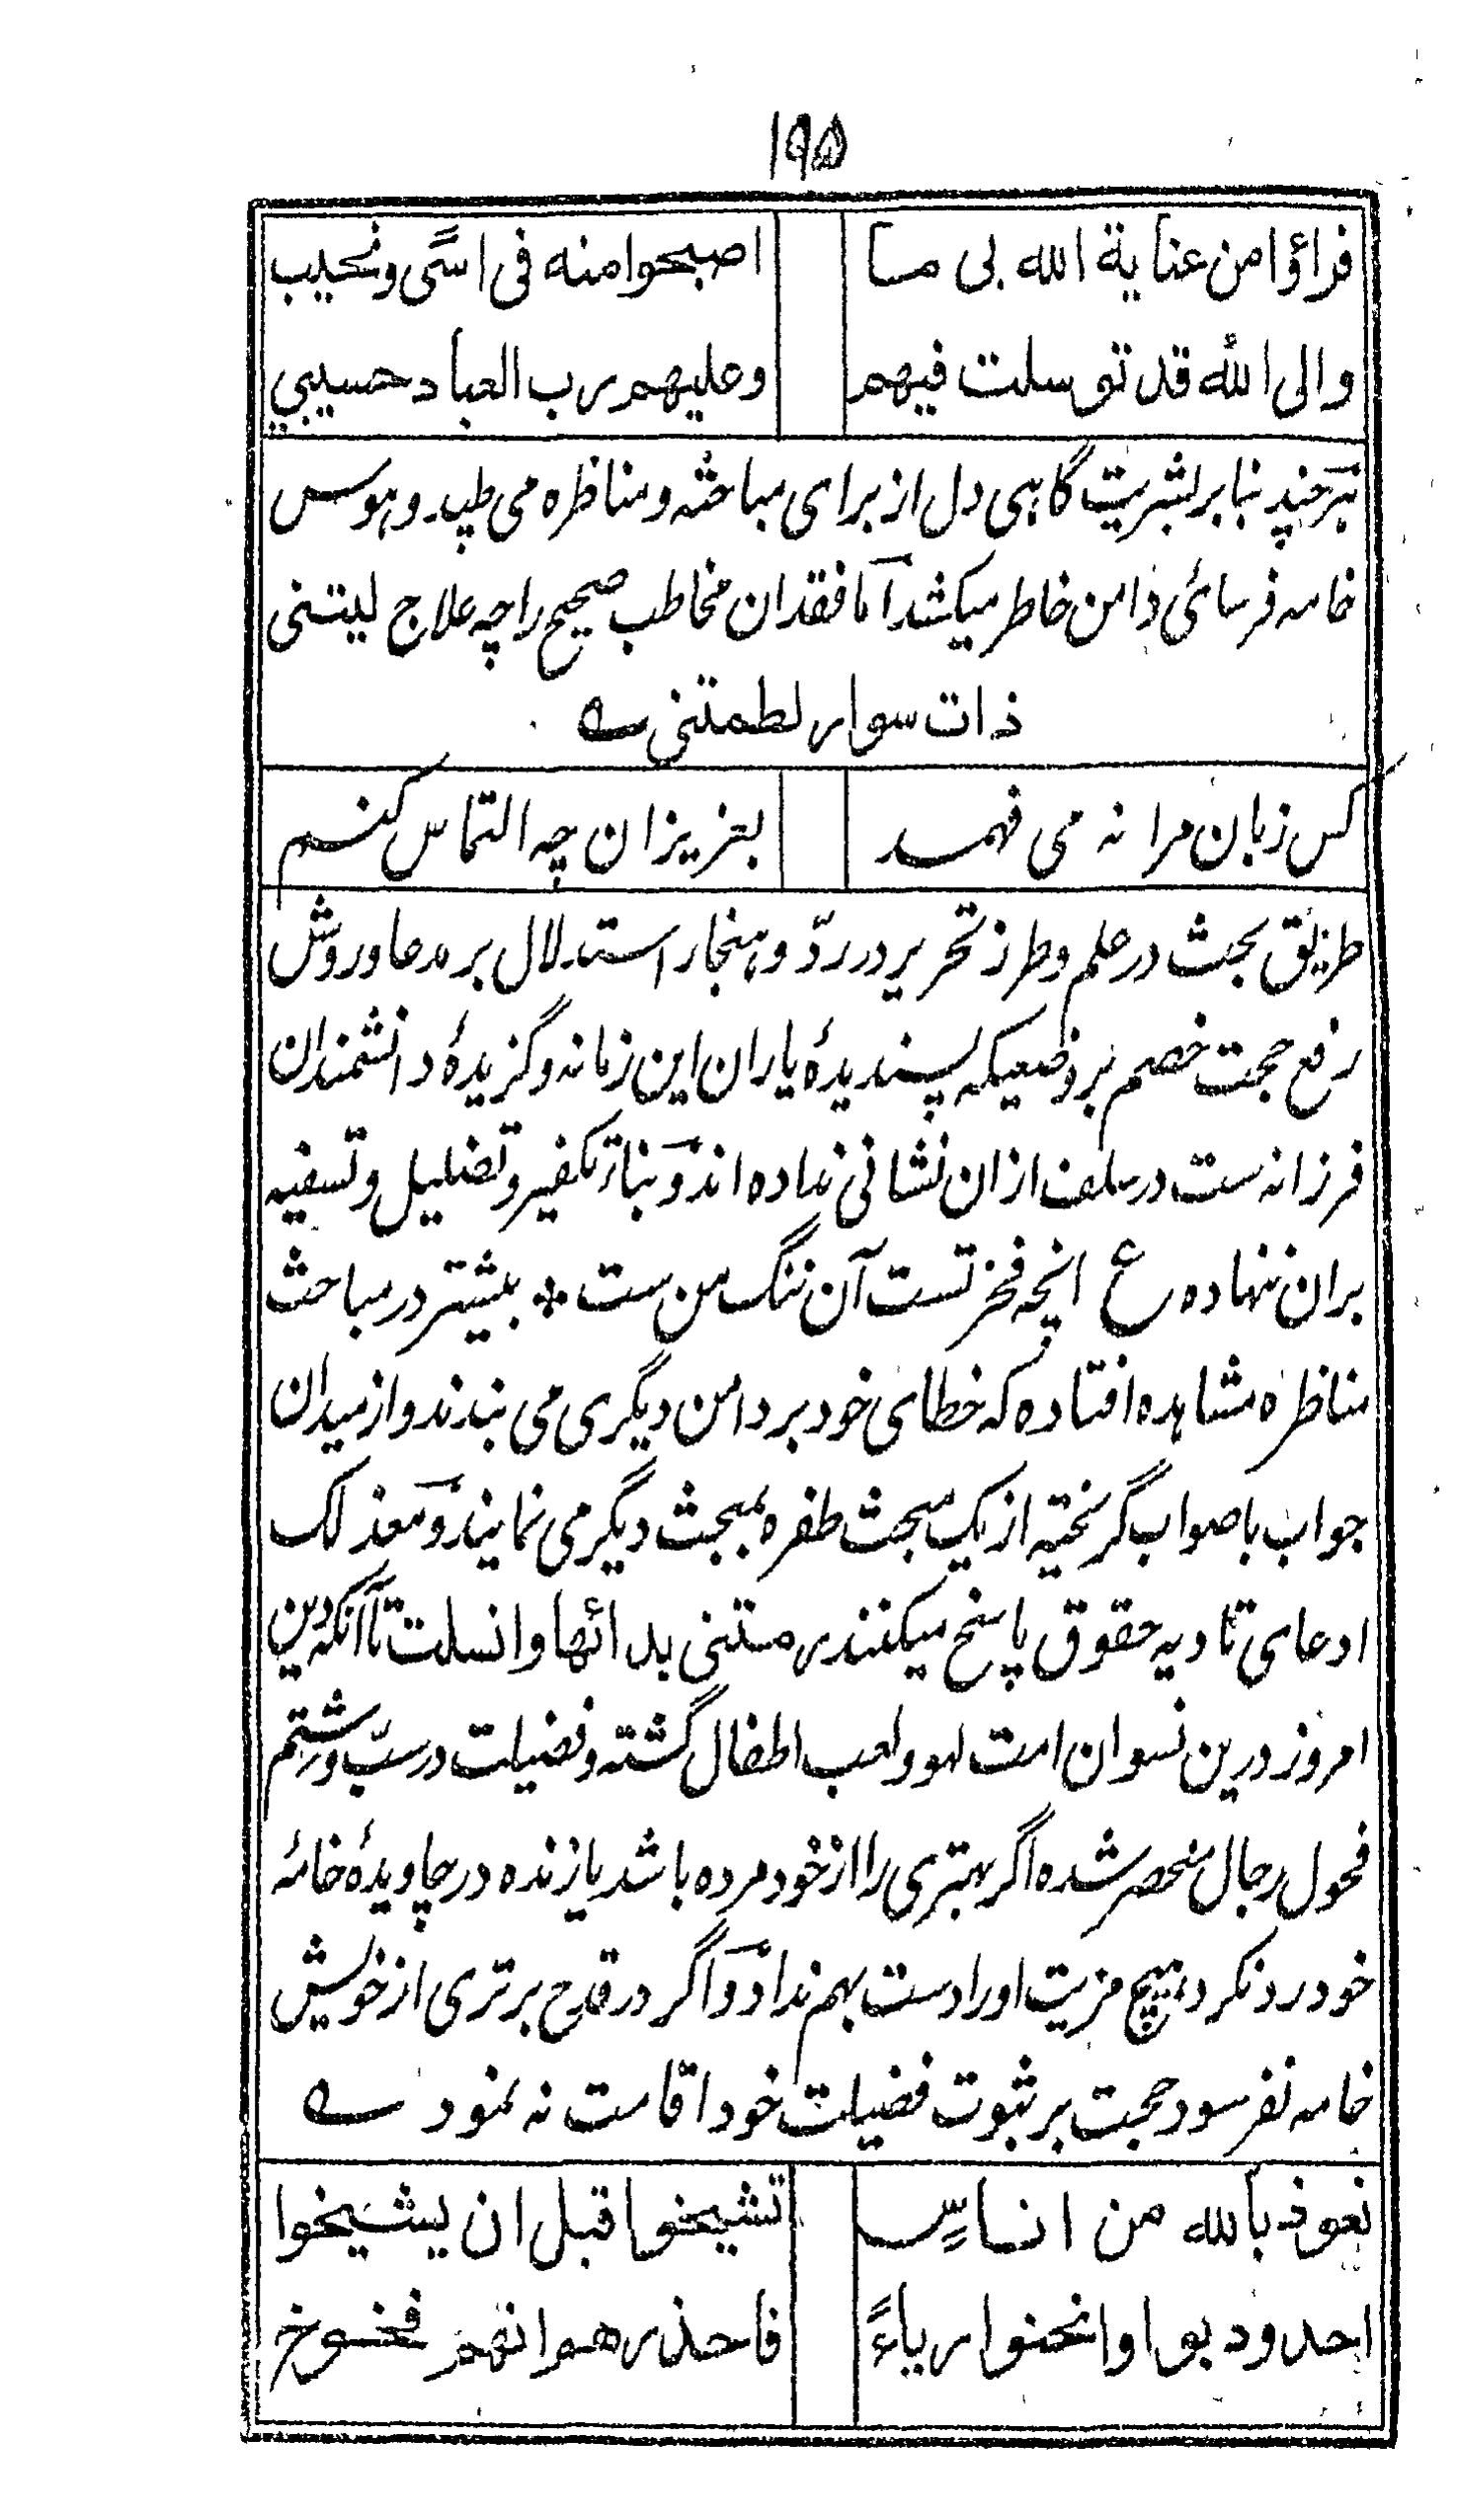 ۱۹۵
فراؤا من عناية الله لى ما اصبحوا منه فى اسًى ونحيب
والى الله قد توسلت فيهم وعليهم رب العباد حسيبي
هرچند بنابر بشریت گاهی دل از برای مباحثه و مناظره می طپد و هوس
خامه فرسائی دامن خاطر میکشد اما فقدان مخاطب صحیح را چه علاج لیتنی
ذات سوار لطمتنی ے
کس زبان مرا نه می فهمد بعزیزان چه التماس کنم
طریق بحث در علم و طرز تحریر در ردّ و هنجار استدلال بر مدعا و روش
رفع حجت خصم بر وضعیکه پسندیدۀ یاران این زمانه و گزیدۀ دانشمندان
فرزانه ست در سلف ازان نشانی نداده اند و بناء تکفیر و تضلیل و تسفیه
بران ننهاده ع انچه فخر تست آن ننگ من ست ٭ بیشتر در مباحث
مناظره مشاهده افتاده که خطای خود بر دامن دیگری می بندند و از میدان
جواب با صواب گریخته از یک مبحث طفره بمبحث دیگر می نمایند و معذلک
ادعای تادیه حقوق پاسخ میکنند رمتنی بدائها وانسلت تا آنکه دین
امروز درین نسوان امت لهو و لعب اطفال گشته و فضیلت در سبّ و شتم
فحول رجال منحصر شده اگر بهتری را از خود مرده باشد یا زنده در چاویدۀ خامۀ
خود رد نکرد هیچ مزیت او را دست بهم نداد و اگر در قدح برتری از خویش
خامه نفرسود حجت بر ثبوت فضیلت خود اقامت نه نمود ے
نعوذ بالله من اناسٍ تشيخوا قبل ان يشيخوا
احدودبوا وانحنوا رياءً فاحذرهم انهم فخوخ